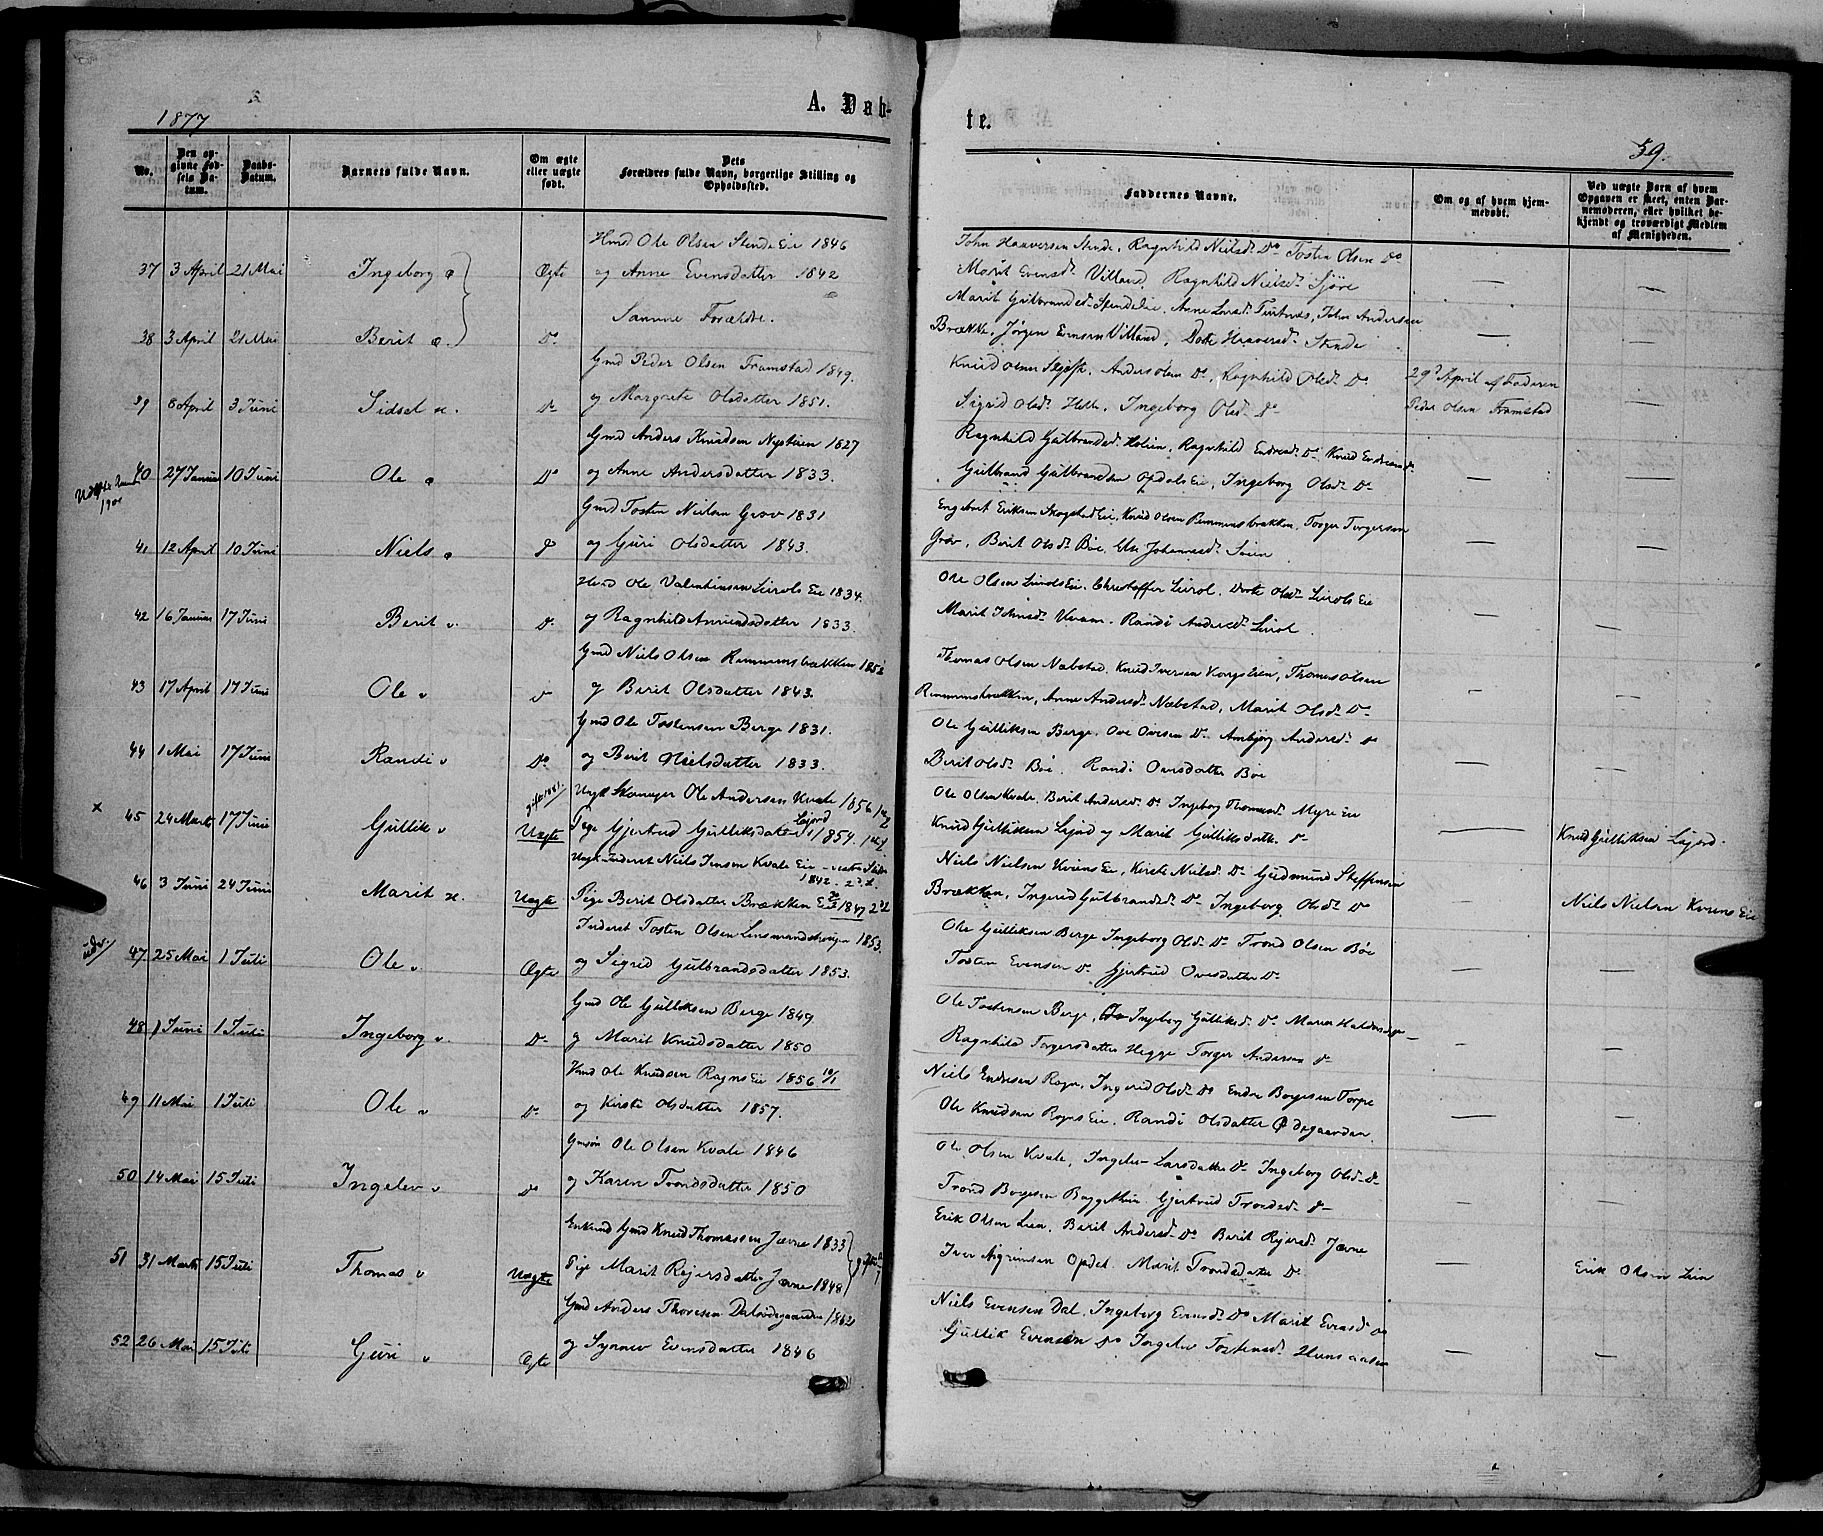 1877
A. Dab-
te.
59.
No.
Den opgivne Fødsels Datum.
Daabs-Datum.
Barnets fulde Navn.
Om ægte eller uægte født.
Dets Forældres fulde Navn, borgerlige Stilling og Opholdssted.
Faddernes Navne.
Om og af hvem hjemmedøbt.
Ved uægte Børn af hvem Opgaven er skeet, enten Barnemoderen, eller hvilket bekjendt og troværdigt Medlem af Menigheden.
Hmd Ole Olsen Stende Eie 1846
John Haaversen Stende, Ragnhild Nielsd. Do Tosten Olsen Do
37 3 April 21 Mai Ingeborg Ægte og Anne Evensdatter 1842
Marit Evensd. Villand, Ragnhild Nielsd. Sjøre —
Samme Forældre.
Marit Gulbrandsd. Stende Eie, Anne Larsd. John Andersen
38 3 April 21 Mai Berit Do
Brække, Jørgen Evensen Villand, Dorte Haaversd. Stende — —
Gmd Peder Olsen Framstad 1849.
Knud Olsen Anders Olsen Do, Ragnhild Olsd. Do 29d April af Faderen
39 8 April 3 Juni Sidsel Do og Margrete Olsdatter 1851.
Sigrid Olsd. Helle, Ingeborg Olsd. Do Peder Olsen Framstad —
Gmd Anders Knudsen Nystuen 1827
Ragnhild Gulbrandsd. Holien, Ragnhild Endresd. Do Knud
40 27 Januar 10 Juni Ole Do og Anne Andersdatter 1833.
Gulbrand Gulbrandsen Opdals Eie, Ingeborg Olsd. Do — —
1901
Gmd Tosten Nielsen Grøv 1831
Engebret Eriksen Skogstad Eie, Knud Olsen Remmensbrækken, Torger Torgersen
41 12 April 10 Juni Niels og Guri Olsdatter 1843.
Grøv, Berit Olsd. Bøe, Else Johannesd. — —
Hmd Ole Valentinsen Lirols Eie 1834.
Ole Olsen Lirols Eie, Christoffer Lirol, Dorte Olsd. Lirols Eie
42 16 Januar 17 Juni Berit Do og Ragnhild Amundsdatter 1833.
Marit Johnsd. Randi Andersd. Lirol. — —
Gmd Niels Olsen Remmensbrækken 1852
Thomas Olsen Næbstad, Knud Iversen Kongslien, Thomas Olsen
43 17 April 17 Juni Ole og Berit Olsdatter 1843.
Remmensbrækken, Anne Andersd. Næbstad, Marit Olsd. Do — —
Gmd Ole Tostensen Berge 1831.
Ole Gulliksen Berge, Ove Ovesen Do Ambjørg Andersd. Do
44 1 Mai 17 Juni Randi Do og Berit Nielsdatter 1833.
Berit Olsd. Bøe, Randi Ovesdatter Bøe — —
gift 1881.
Ungk. Skomager Ole Andersen Kvale 1856 1ste
Ole Olsen Kvale, Berit Andersd. Do Ingeborg Thomasd. Myre Eie
x 45 24 Marts 17 Juni Gullik Uægte Pige Gjertrud Gulliksdatter Lajord 1854. 1ste
Knud Gulliksen Lajord og Marit Gulliksdatter Do — Knud Gulliksen Lajord.
Ungk. Inderst Niels Jensen Kvale Eie 1842 2d
Niels Nielsen Kviens Eie, Kirste Nielsd. Do Gudmund Steffensen
46 3 Juni 24 Juni Marit Uægte Pige Berit Olsdatter Brækken Eie 1847 2d
Brækken, Ingerid Gulbrandsd. Do Ingeborg Olsd. Do — Niels Nielsen Kviens Eie
Inderst Tosten Olsen Lensmandshougen 1853.
Ole Gulliksen Berge Ingeborg Olsd. Do Trond Olsen Bøe
udv. 47 25 Mai 1 Juli Ole Ægte og Sigrid Gulbrandsdatter 1853.
Tosten Evensen Do Gjertrud Ovesdatter Do — —
Gmd Ole Gulliksen Berge 1849
Ole Tostensen Berge, Ingeborg Gulliksd. Do Maria
48 1 Juni 1 Juli Ingeborg Do og Marit Knudsdatter 1850
Ragnhild Torgersdatter Hegge Torger Andersen Do — —
Hmd Ole Knudsen Rogns Eie 1856 10/1
Niels Endresen Rogn, Ingerid Olsd. Do Endre Børgesen Torpe
49 11 Mai 1 Juli Ole Do og Kirste Olsdatter 1857.
Ole Knudsen Rogns Eie, Randi Olsdatter Ødegaarden. — —
Gmsøn Ole Olsen Kvale 1846
Ole Olsen Kvale, Ingelev Larsdatter Do Ingeborg Olsd. Do
50 14 Mai 15 Juli Ingelev Do og Karen Trondsdatter 1850
Trond Børgesen Gjertrud Trondsd. Do — —
Enkemd Gmd Knud Thomassen Jævne 1833
Erik Olsen Lien, Berit Andersd. Do Berit Rejersd. Jævne
51 31 Marts 15 Juli Thomas Uægte Pige Marit Rejersdatter Jævne 1848
Iver Asgrimsen Opdal Marit Trondsdatter Do — Erik Olsen Lien
Gmd Anders Thoresen Dalsødegaarden 1862
Niels Evensen Dal, Ingeborg Evensd. Do Marit Evensd. Do
52 26 Mai 15 Juli Guri Ægte og Synnev Evensdatter 1846
Gullik Evensen Do Ingelev Tostensd. — —